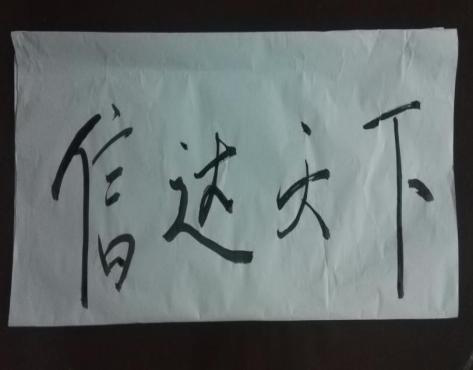 信达天下